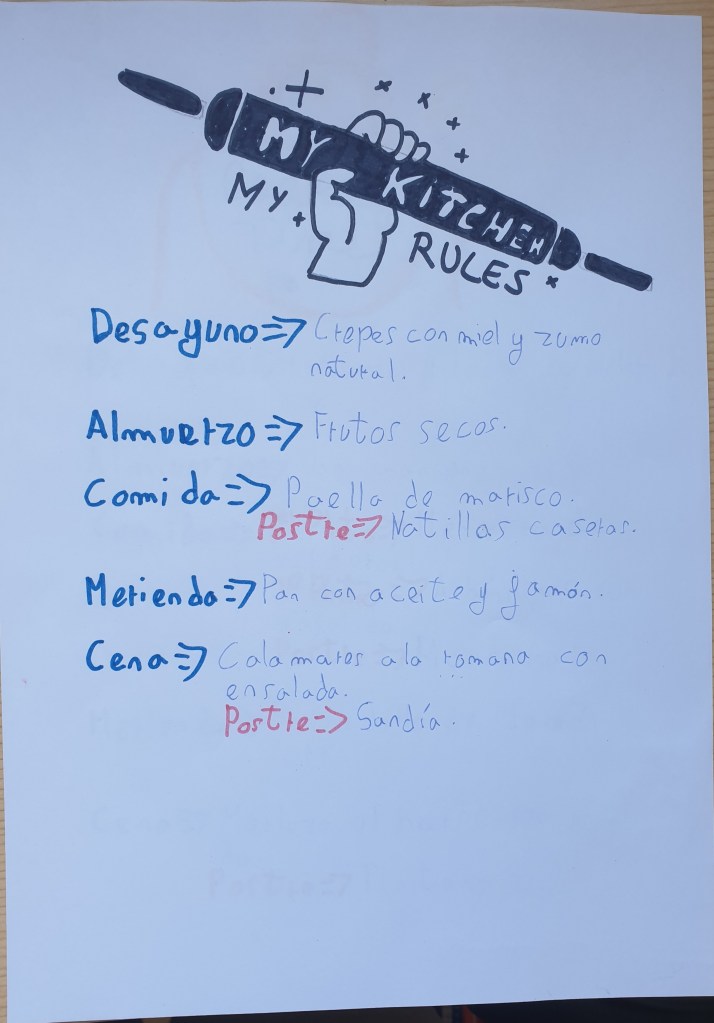 MY KITCHEN
MY RULES
Desayuno=> Crepes con miel y zumo
natural.
Almuerzo=> Frutos secos.
Comida=> Paella de marisco.
Postre=> Natillas caseras.
Merienda=> Pan con aceite y jamón.
Cena=> Calamares a la romana con
ensalada.
Postre=> Sandía.